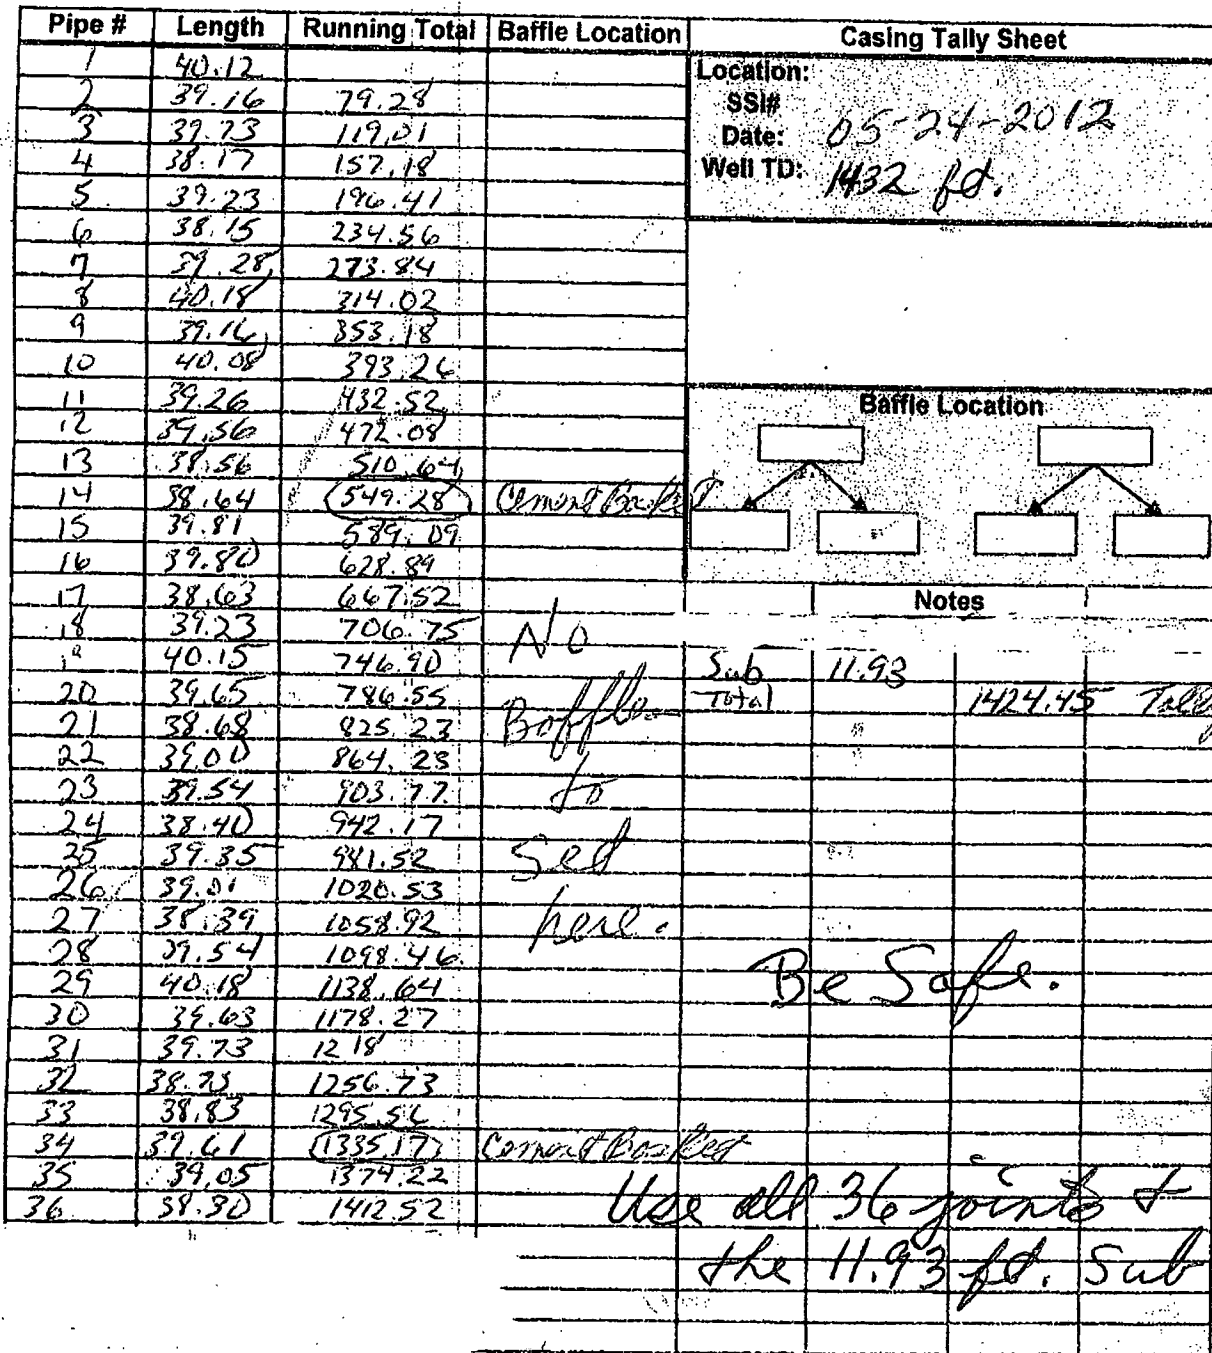 Pipe # Length Running Total Baffle Location Casing Tally Sheet
1 40.12
2 39.16 79.28
3 39.73 119.01
4 38.17 157.18
5 39.23 196.41
6 38.15 234.56
7 39.28 273.84
8 40.18 314.02
9 39.16 353.18
10 40.08 393.26
11 39.26 432.52
12 39.56 472.08
13 38.56 510.64
14 38.64 549.28 Cement Basket
15 39.81 589.09
16 39.80 628.89
17 38.63 667.52
18 39.23 706.75
19 40.15 746.90
20 39.65 786.55
21 38.68 825.23
22 39.00 864.23
23 39.54 903.77
24 38.40 942.17
25 39.35 981.52
26 39.01 1020.53
27 38.39 1058.92
28 39.54 1098.46
29 40.18 1138.64
30 39.63 1178.27
31 39.73 1218
32 38.73 1256.73
33 38.83 1295.56
34 39.61 1335.17 Cement Basket
35 39.05 1374.22
36 38.30 1412.52
No
Baffles
to
set
here.
Location:
SSI#
Date: 05-24-2012
Well TD: 1432 ft.
Baffle Location
Notes
Sub 11.93
Total 1424.45 Tally
Be Safe.
Use all 36 joints &
the 11.93 ft. Sub